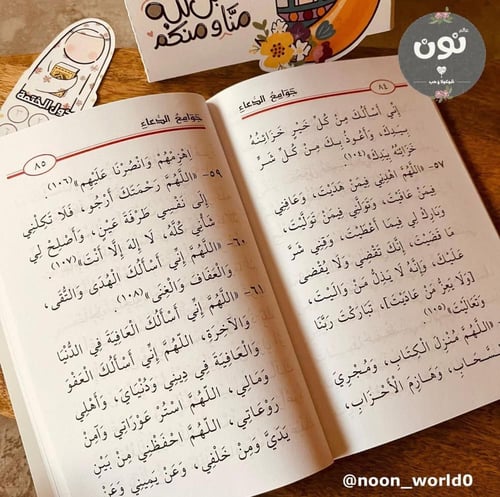 منّا ومنكم
جدول الختمة
نون
شرقية وحب
٨٤
جَوَامِعُ الدُّعَاءِ
إِنِّي أَسْأَلُكَ مِنْ كُلِّ خَيْرٍ خَزَائِنُهُ
بِيَدِكَ، وَأَعُوذُ بِكَ مِنْ كُلِّ شَرٍّ
خَزَائِنُهُ بِيَدِكَ» (١٠٤)
٥٧- «اللَّهُمَّ اهْدِنِي فِيمَنْ هَدَيْتَ، وَعَافِنِي
فِيمَنْ عَافَيْتَ، وَتَوَلَّنِي فِيمَنْ تَوَلَّيْتَ،
وَبَارِكْ لِي فِيمَا أَعْطَيْتَ، وَقِنِي شَرَّ
مَا قَضَيْتَ، إِنَّكَ تَقْضِي وَلَا يُقْضَى
عَلَيْكَ، وَإِنَّهُ لَا يَذِلُّ مَنْ وَالَيْتَ،
[وَلَا يَعِزُّ مَنْ عَادَيْتَ]، تَبَارَكْتَ رَبَّنَا
وَتَعَالَيْتَ» (١٠٥)
اللَّهُمَّ مُنْزِلَ الْكِتَابِ، وَمُجْرِيَ
السَّحَابِ، وَهَازِمَ الْأَحْزَابِ،
جَوَامِعُ الدُّعَاءِ
٨٥
اهْزِمْهُمْ وَانْصُرْنَا عَلَيْهِمْ» (١٠٦).
٥٩- «اللَّهُمَّ رَحْمَتَكَ أَرْجُو، فَلَا تَكِلْنِي
إِلَى نَفْسِي طَرْفَةَ عَيْنٍ، وَأَصْلِحْ لِي
شَأْنِي كُلَّهُ، لَا إِلَهَ إِلَّا أَنْتَ» (١٠٧)
٦٠- «اللَّهُمَّ إِنِّي أَسْأَلُكَ الْهُدَى وَالتُّقَى،
وَالْعَفَافَ وَالْغِنَى» (١٠٨).
٦١- «اللَّهُمَّ إِنِّي أَسْأَلُكَ الْعَافِيَةَ فِي الدُّنْيَا
وَالْآخِرَةِ، اللَّهُمَّ إِنِّي أَسْأَلُكَ الْعَفْوَ
وَالْعَافِيَةَ فِي دِينِي وَدُنْيَايَ، وَأَهْلِي
وَمَالِي، اللَّهُمَّ اسْتُرْ عَوْرَاتِي وَآمِنْ
رَوْعَاتِي، اللَّهُمَّ احْفَظْنِي مِنْ بَيْنِ
يَدَيَّ وَمِنْ خَلْفِي، وَعَنْ يَمِينِي وَعَنْ
@noon_world0